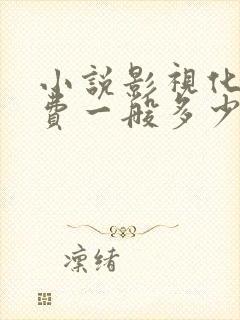 小説影視化
費一般多少
凜緒